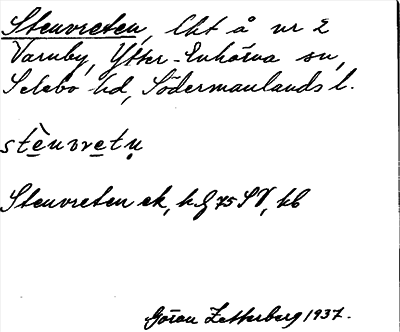 Stenvreten, lht å nr 2
Varnby, Ytter-Enhörna sn,
Selebo hd, Södermanlands l.
stè̱nvre̱tṇ
Stenvreten ek, h. G 75 SV, hb
Göran Zetterberg 1937.